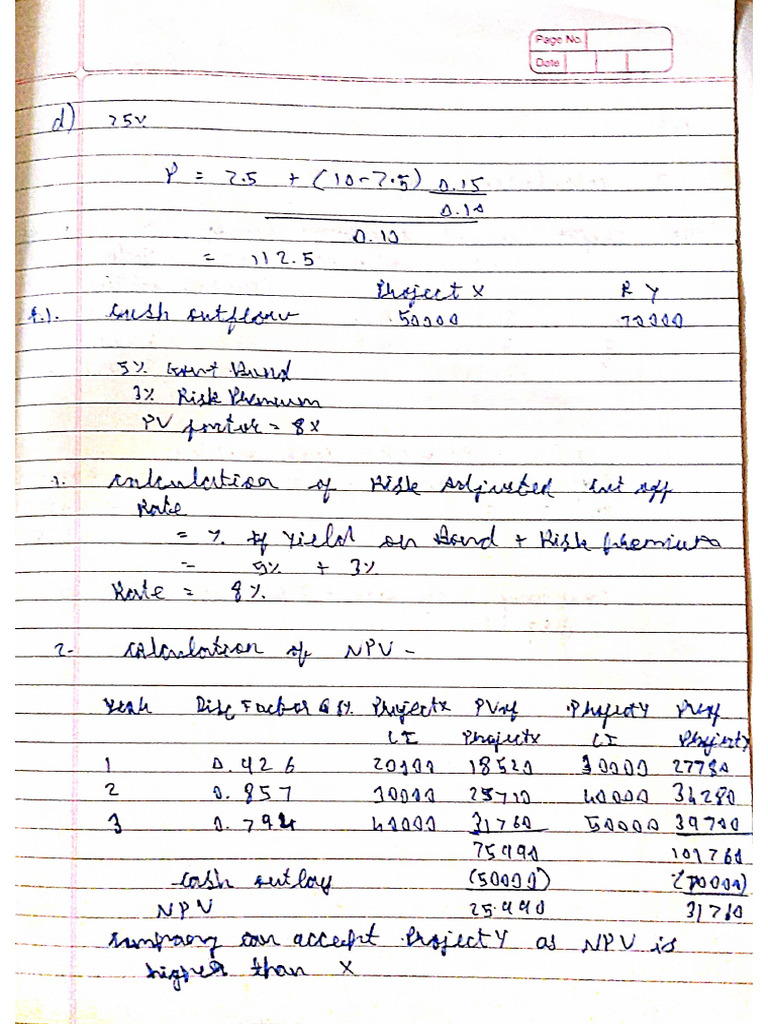 Page No.
Date
d) 75%
P = 7.5 + (10-7.5) 0.15
0.10
0.10
= 112.5
Project X P Y
Cash outflow 50000 70000
5% Govt Bond
3% Risk Premium
PV factor = 8%
1. Calculation of Risk Adjusted cut off
Rate
= % of Yield on Bond + Risk premium
= 5% + 3%
Rate = 8%
2- Calculation of NPV -
Year Disc Factor @ 8% Project X PV of Project Y PV of
CI Project X CI Project Y
1 0.926 20000 18520 30000 27780
2 0.857 30000 25710 40000 34280
3 0.794 40000 31760 50000 39700
75990 101760
Cash outlay (50000) (70000)
NPV 25990 31760
company can accept Project Y as NPV is
higher than X